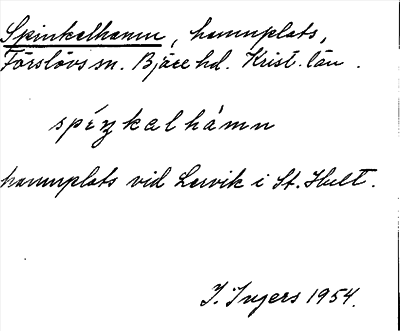 Spinkelhamn, hamnplats,
Förslövs sn. Bjäre hd. Krist. län.
spéŋkalhàmn
hamnplats vid Lervik i St. Hult.
I. Ingers 1954.